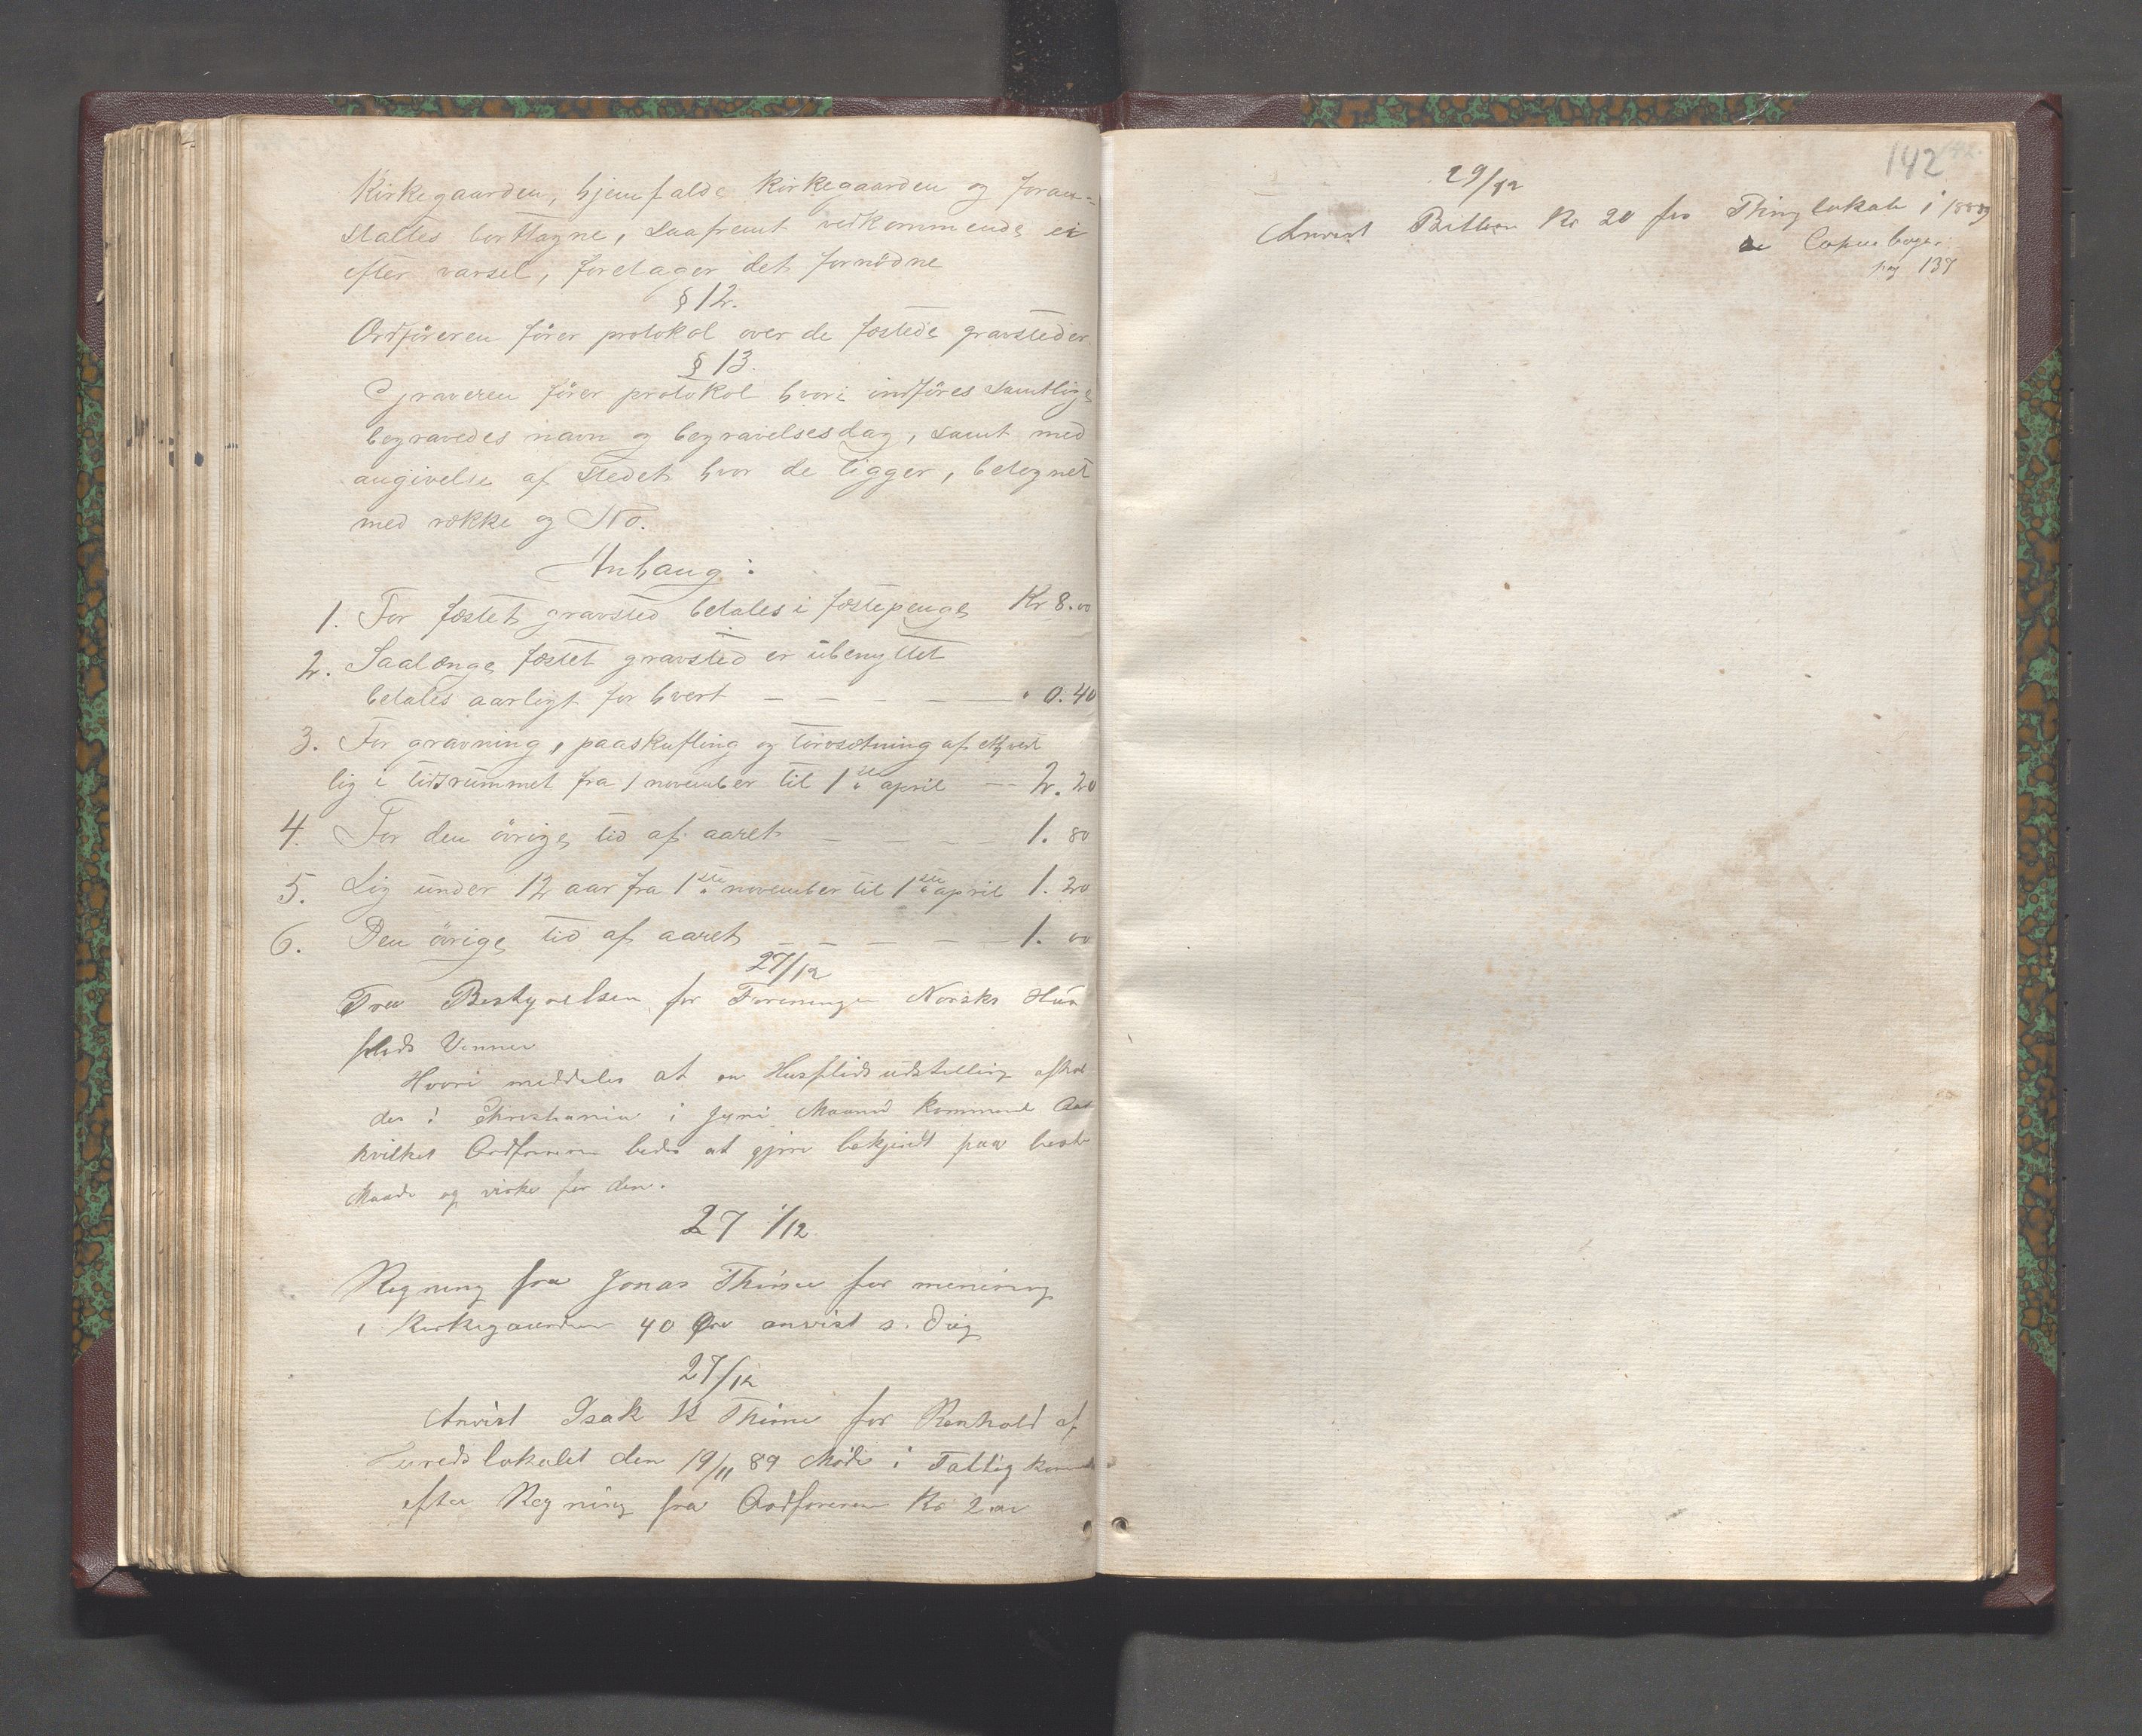 Kirkegaarden, hjemfalde Kirkegaarden og foran-
staltes borttagne, saafremt vedkommende ei
efter varsel, foretager det fornödne
§ 12.
Ordföreren förer protokol over de fæstede gravsteder.
§ 13.
Graveren förer protokol hvori indföres samtlige
begravedes navn og begravelsesdag, samt med
angivelse af stedet hvor de ligger, betegnet
med række og No.
Anhang:
1. For fæstet gravsted betales i fæstepenge Kr 8.00
2. Saalænge fæstet gravsted er ubenyttet
betales aarligt for hvert — — — — — " 0.40
3. For gravning, paaskufling og törvsætning af ethvert
lig i tidsrummet fra 1 november til 1ste april — 2.20
4. For den övrige tid af aaret — — — — 1.80
5. Lig under 12 aar fra 1ste november til 1ste april 1.20
6. Den övrige tid af aaret — — — — — 1.00
27/12
Fra Bestyrelsen for Foreningen Norsks Hus
flids Venner
Hvori meddeles at en Husflidsudstilling afhol
des i Christiania i Juni Maaned kommende Aar
hvilket Ordføreren bedes at gjøre bekjendt paa beste
Maade og virke for den.
27 1/12
Regning fra Jonas Thime for
i Kirkegaarden 40 Øre anvist s. Dag
27/12
Anvist Isak K Thime for Renhold af
Herredslokalet den 19/11 89 Møde i Fattigkom
efter Regning fra Ordføreren Kr 2.00
142
29/12
Anvist Kr 20 for Thinglokale i 1889
se Copiebogen
pag 137